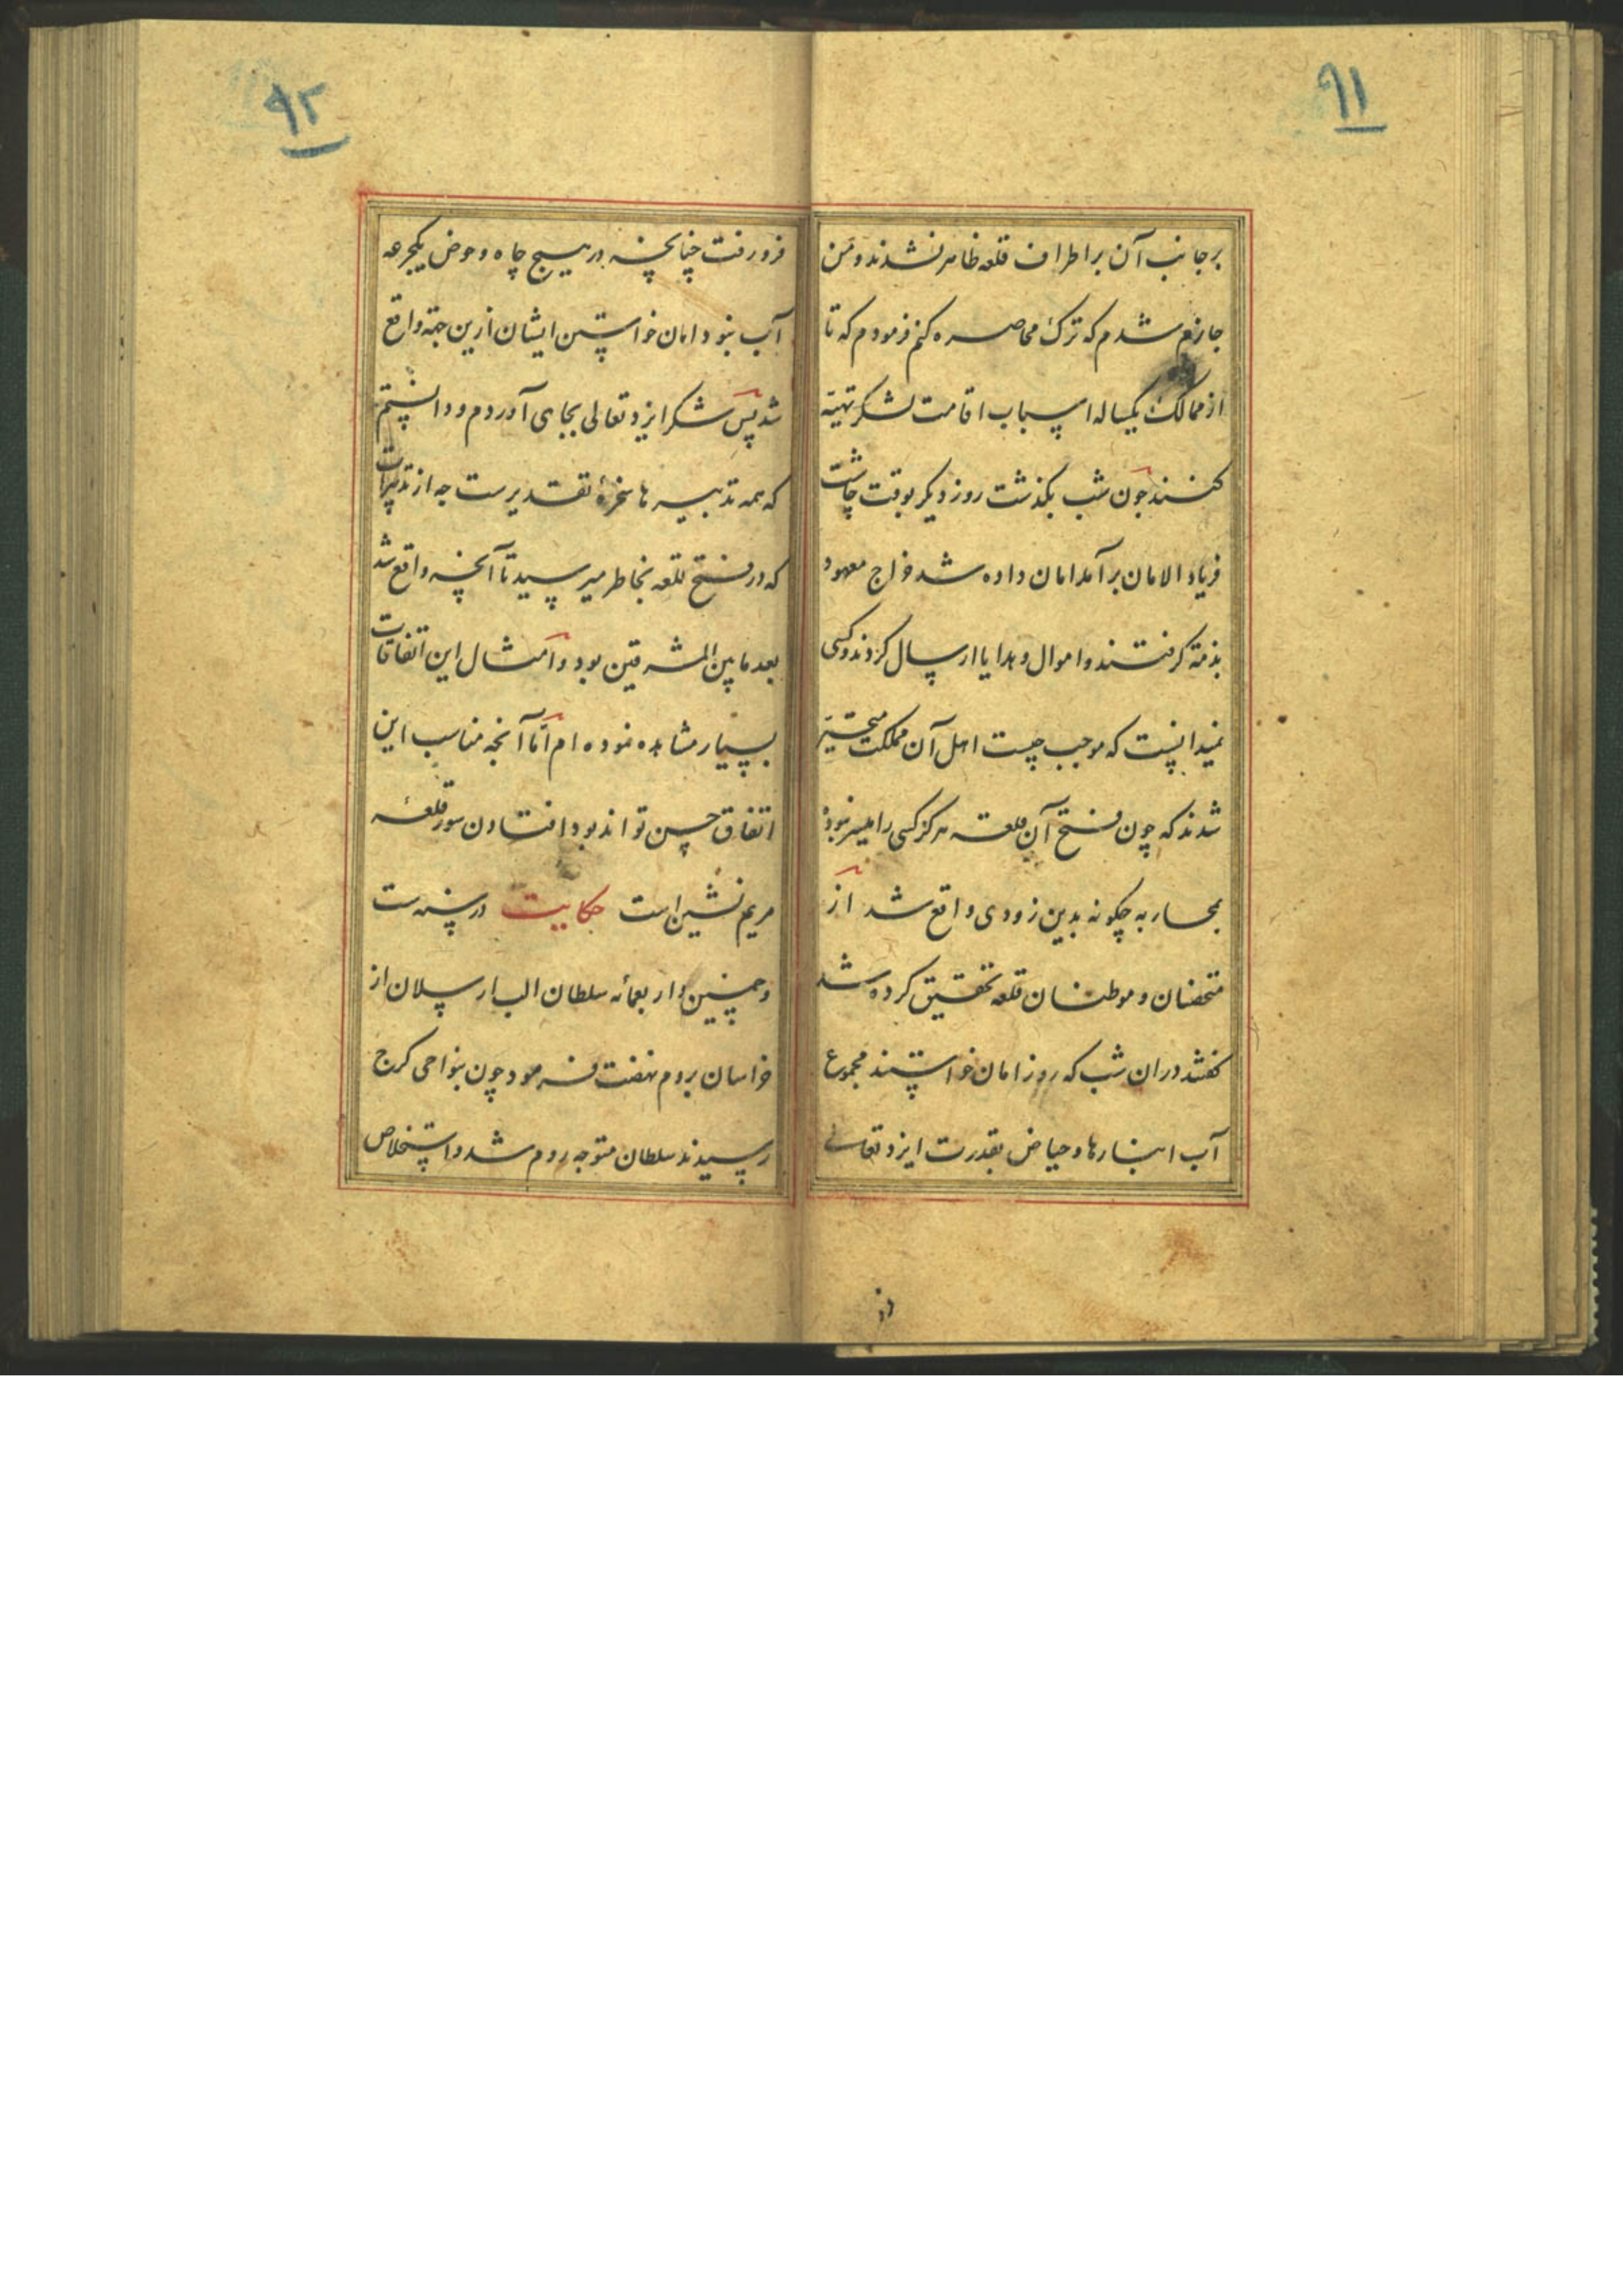 ۹۱
بر جانب آن بر اطراف قلعه ظاهر نشدند و من
جازم شدم که ترک محاصره کنم فرمودم که تا
از ممالک یکساله اسباب اقامت لشکر تهیّه
کنند چون شب بگذشت روز دیگر بوقت چاشت
فریاد الامان برآمد امان داده شد خراج معهود
بذمّه گرفتند و اموال و هدایا ارسال کردند و کسی
نمیدانست که موجب چیست اهل آن مملکت متحیّر
شدند که چون فتح آن قلعه هرگز کسی را میسر نبود
بمحاربه چگونه بدین زودی واقع شد از
متحصنان و موطنان قلعه تحقیق کرده شد
گفتند در آن شب که روز امان خواستند مجموع
آب انبارها و حیاض بقدرت ایزد تعالی
۹۲
فرو رفت چنانچه در هیچ چاه و حوض یکجرعه
آب نبود امان خواستن ایشان ازین جهة واقع
شد پس شکر ایزد تعالی بجای آوردم و دانستم
که همه تدبیرها سخرهٔ تقدیرست چه از تدبیرات
که در فتح قلعه بخاطر میرسید تا آنچه واقع شد
بعد ما بین المشرقین بود و امثال این اتفاقات
بسیار مشاهده نموده ام امّا آنچه مناسب این
اتفاق حسن تواند بود افتادن سور قلعهٔ
مریم نشین است حکایت در سنه ست
و خمسین و اربعمائه سلطان الب ارسلان از
خراسان بروم نهضت فرمود چون بنواحی کرج
رسیدند سلطان متوجه روم شد و استخلاص